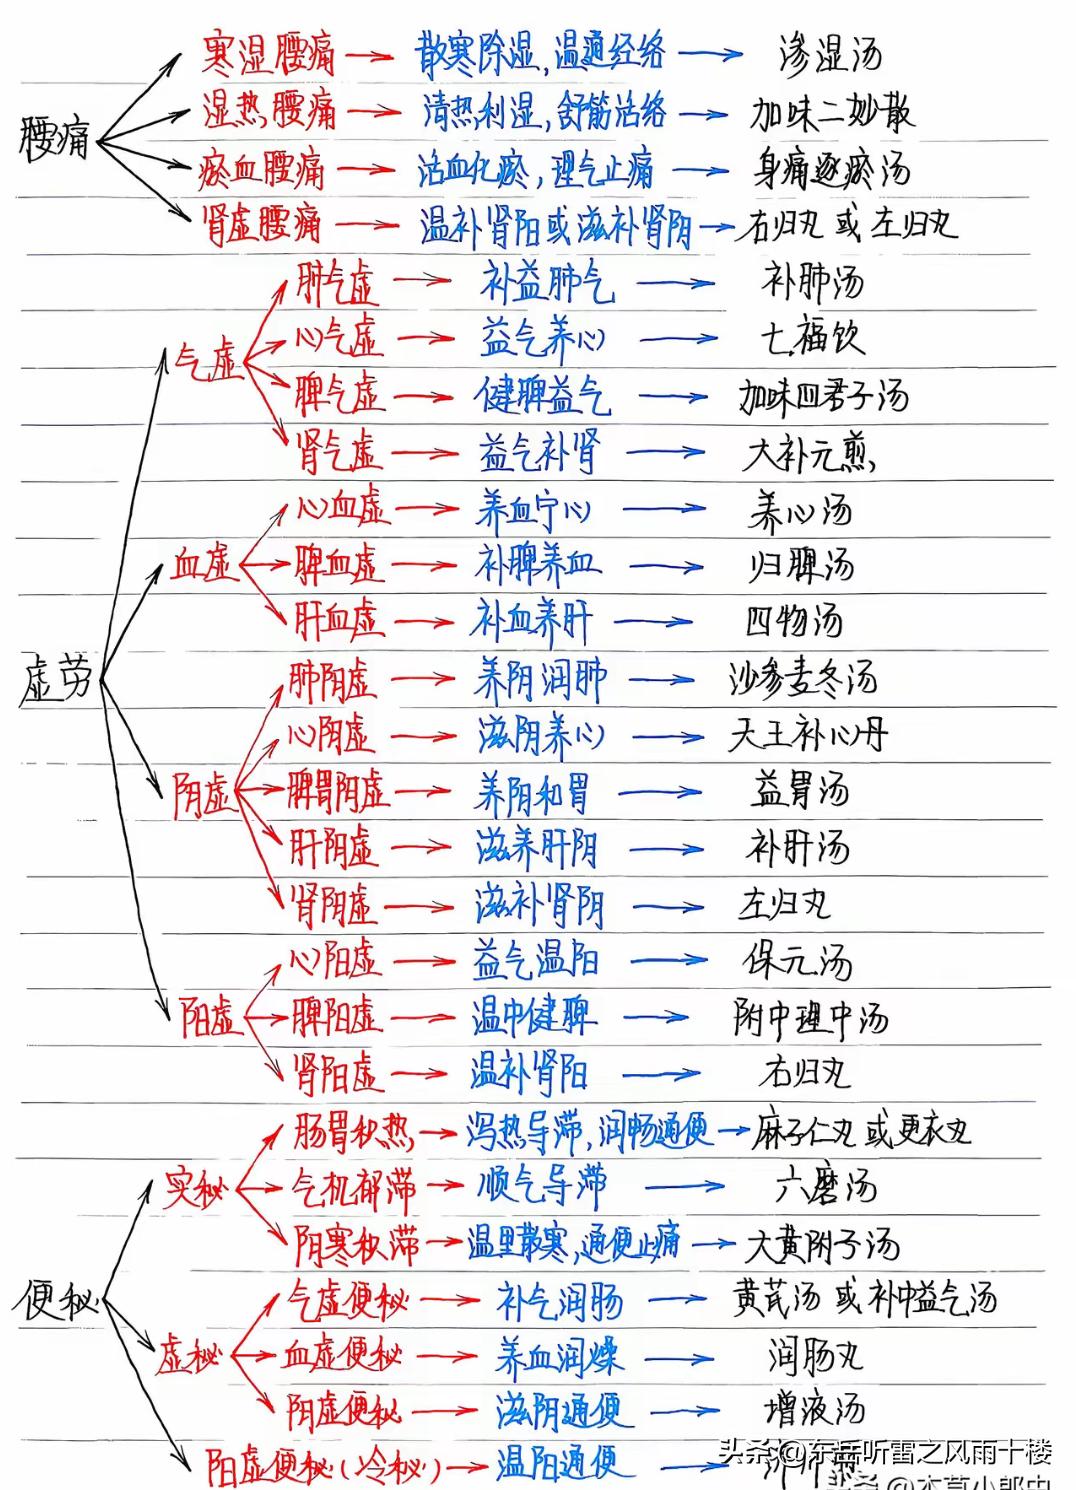 寒湿腰痛 → 散寒除湿,温通经络 → 渗湿汤
湿热腰痛 → 清热利湿,舒筋活络 → 加味二妙散
腰痛
瘀血腰痛 → 活血化瘀,理气止痛 → 身痛逐瘀汤
肾虚腰痛 → 温补肾阳或滋补肾阴 → 右归丸 或 左归丸
肺气虚 → 补益肺气 → 补肺汤
心气虚 → 益气养心 → 七福饮
气虚
脾气虚 → 健脾益气 → 加味四君子汤
肾气虚 → 益气补肾 → 大补元煎
心血虚 → 养血宁心 → 养心汤
血虚 脾血虚 → 补脾养血 → 归脾汤
肝血虚 → 补血养肝 → 四物汤
虚劳 肺阴虚 → 养阴润肺 → 沙参麦冬汤
心阴虚 → 滋阴养心 → 天王补心丹
阴虚 脾胃阴虚 → 养阴和胃 → 益胃汤
肝阴虚 → 滋养肝阴 → 补肝汤
肾阴虚 → 滋补肾阴 → 左归丸
心阳虚 → 益气温阳 → 保元汤
阳虚 脾阳虚 → 温中健脾 → 附中理中汤
肾阳虚 → 温补肾阳 → 右归丸
肠胃积热 → 泻热导滞,润畅通便 → 麻子仁丸 或更衣丸
实秘 气机郁滞 → 顺气导滞 → 六磨汤
阴寒积滞 → 温里散寒,通便止痛 → 大黄附子汤
便秘 气虚便秘 → 补气润肠 → 黄芪汤 或 补中益气汤
虚秘 血虚便秘 → 养血润燥 → 润肠丸
阴虚便秘 → 滋阴通便 → 增液汤
阳虚便秘(冷秘) → 温阳通便 →
头条@东岳听雷之风雨十楼
头条@本草小郎中